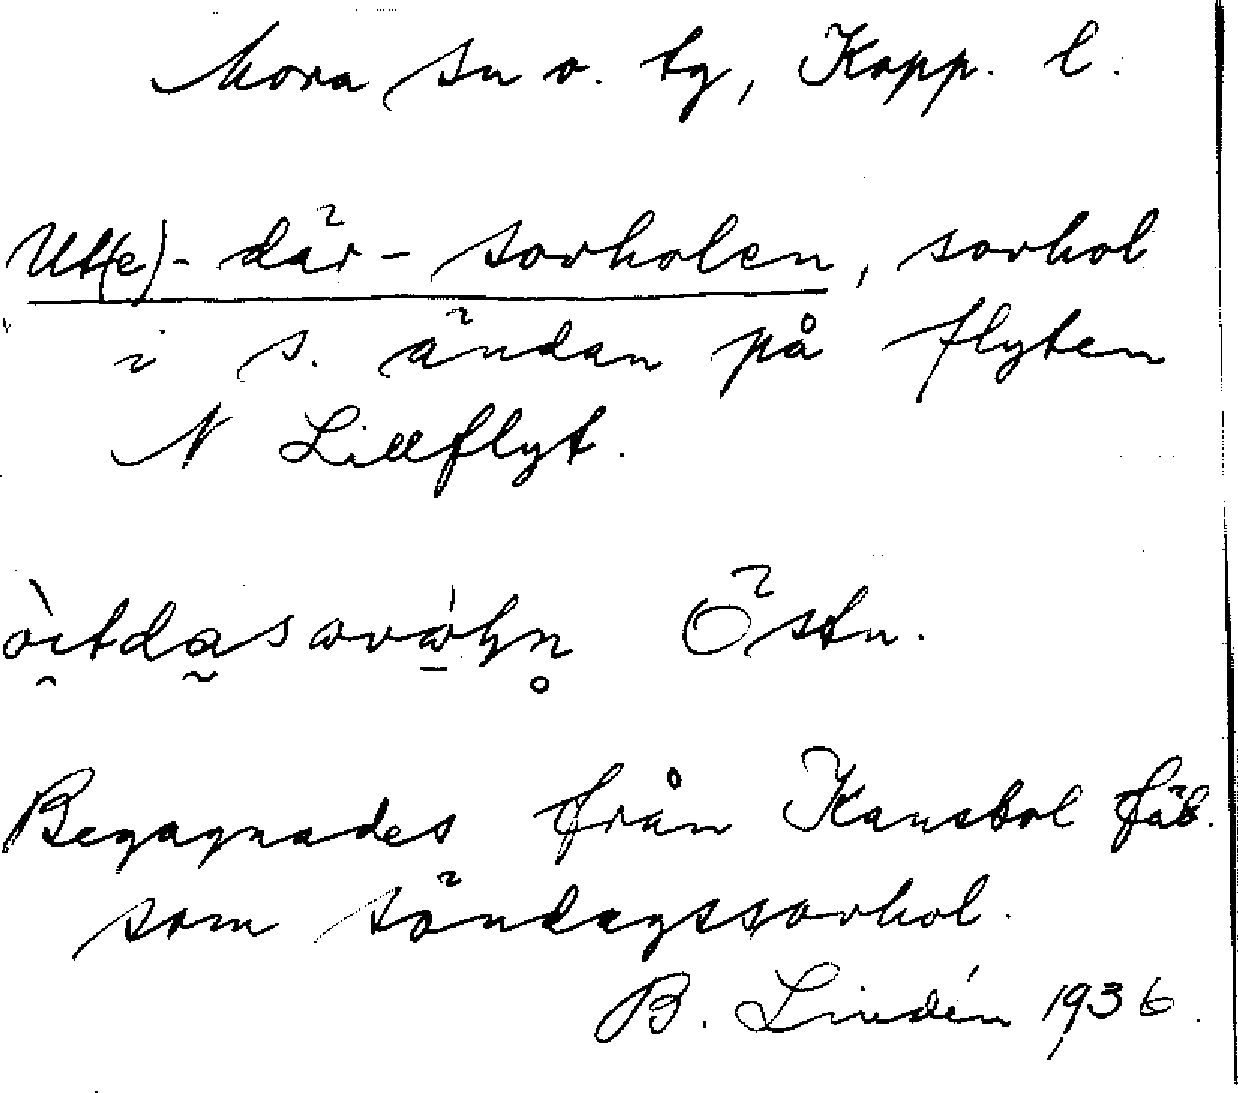 Mora sn o. tg, Kopp. l.
Ut(e)-där-sovholen, sovhol
i s. ändan på flyten
N Lillflyt.
Östn.
Begagnades från Kansbol fäb.
som söndagssovhol.
B. Lindén 1936.